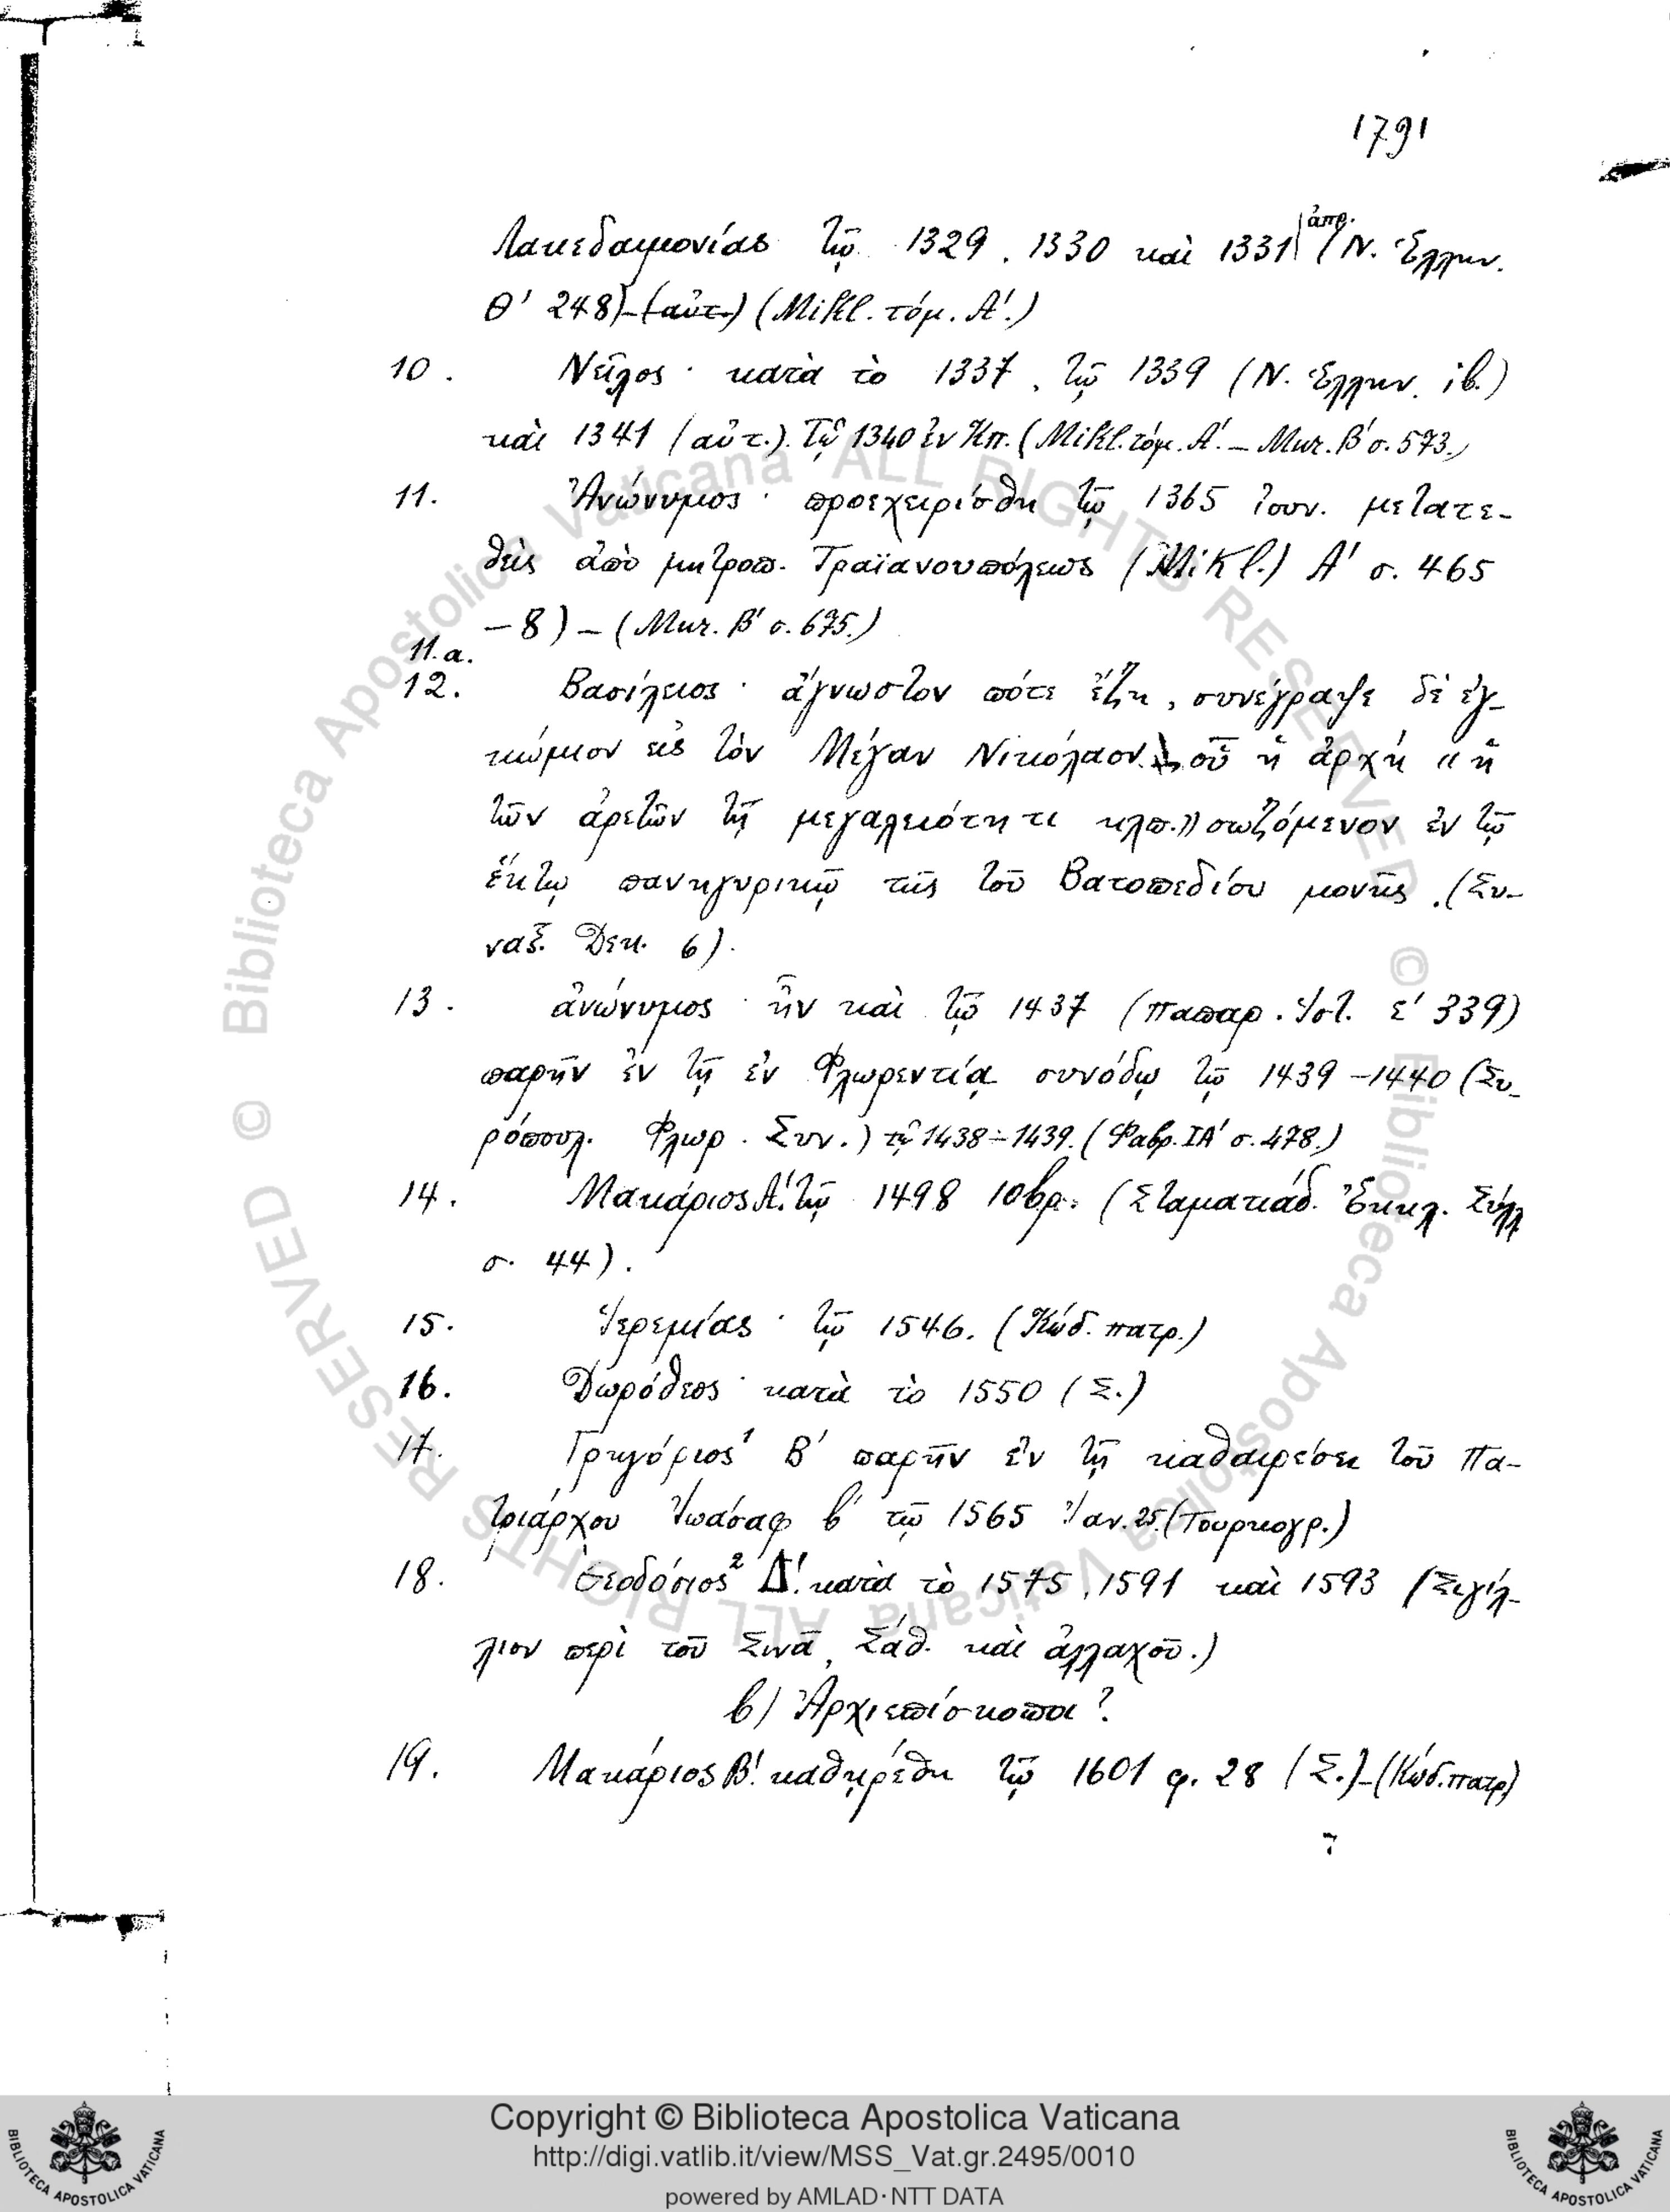 1791
Λακεδαιμονίας τῷ 1329, 1330 καὶ 1331 ἀπρ. (Ν. Ἑλλην.
Θ' 248) – (αὐτ.) (Mikl. τόμ. Α'.)
10. Νεῖλος · κατὰ τὸ 1337, τῷ 1339 (Ν. Ἑλλην. ιβ.)
καὶ 1341 (αὐτ.). Τῷ 1340 ἐν Κπ. (Mikl. τόμ. Α'. – Mur. Β' σ. 573.)
11. Ἀνώνυμος · προεχειρίσθη τῷ 1365 ἰουν. μετατε-
θεὶς ἀπὸ μητροπ. Τραϊανουπόλεως (Mikl.) Α' σ. 465
– 8) – (Mur. Β' σ. 675.)
11.α.
12. Βασίλειος · ἄγνωστον πότε ἔζη, συνέγραψε δὲ ἐγ-
κώμιον εἰς τὸν Μέγαν Νικόλαον, οὗ ἡ ἀρχὴ «ἡ
τῶν ἀρετῶν τῇ μεγαλειότητι κλπ.» σωζόμενον ἐν τῷ
ἕκτῳ πανηγυρικῷ τῆς τοῦ Βατοπεδίου μονῆς. (Συ-
ναξ. Δεκ. 6).
13. ἀνώνυμος · ἦν καὶ τῷ 1437 (Παπαρ. Ἱστ. ε' 339)
παρῆν ἐν τῇ ἐν Φλωρεντίᾳ συνόδῳ τῷ 1439 – 1440 (Συ-
ρόπουλ. Φλωρ. Συν.) τῷ 1438 – 1439. (Φαβρ. ΙΑ' σ. 478.)
14. Μακάριος Α'. τῷ 1498 10βρ. (Σταματιάδ. Ἐκκλ. Σύλλ
σ. 44).
15. Ἱερεμίας · τῷ 1546. (Κώδ. πατρ.)
16. Δωρόθεος · κατὰ τὸ 1550 (Σ.)
17. Γρηγόριος¹ Β' παρῆν ἐν τῇ καθαιρέσει τοῦ Πα-
τριάρχου Ἰωάσαφ β' τῷ 1565 Ἰαν. 25. (Τουρκογρ.)
18. Θεοδόσιος² Δ'. κατὰ τὸ 1575, 1591 καὶ 1593 (Σιγίλ-
λιον περὶ τοῦ Σινᾶ, Σάθ. καὶ ἀλλαχοῦ.)
β) Ἀρχιεπίσκοποι?
19. Μακάριος Β'. καθῃρέθη τῷ 1601 φ. 28 (Σ.) – (Κώδ. πατρ)
© Biblioteca Apostolica Vaticana ALL RIGHTS RESERVED
© Biblioteca Apostolica Vaticana ALL RIGHTS RESERVED
Copyright © Biblioteca Apostolica Vaticana
http://digi.vatlib.it/view/MSS_Vat.gr.2495/0010
powered by AMLAD·NTT DATA
BIBLIOTECA APOSTOLICA VATICANA
BIBLIOTECA APOSTOLICA VATICANA